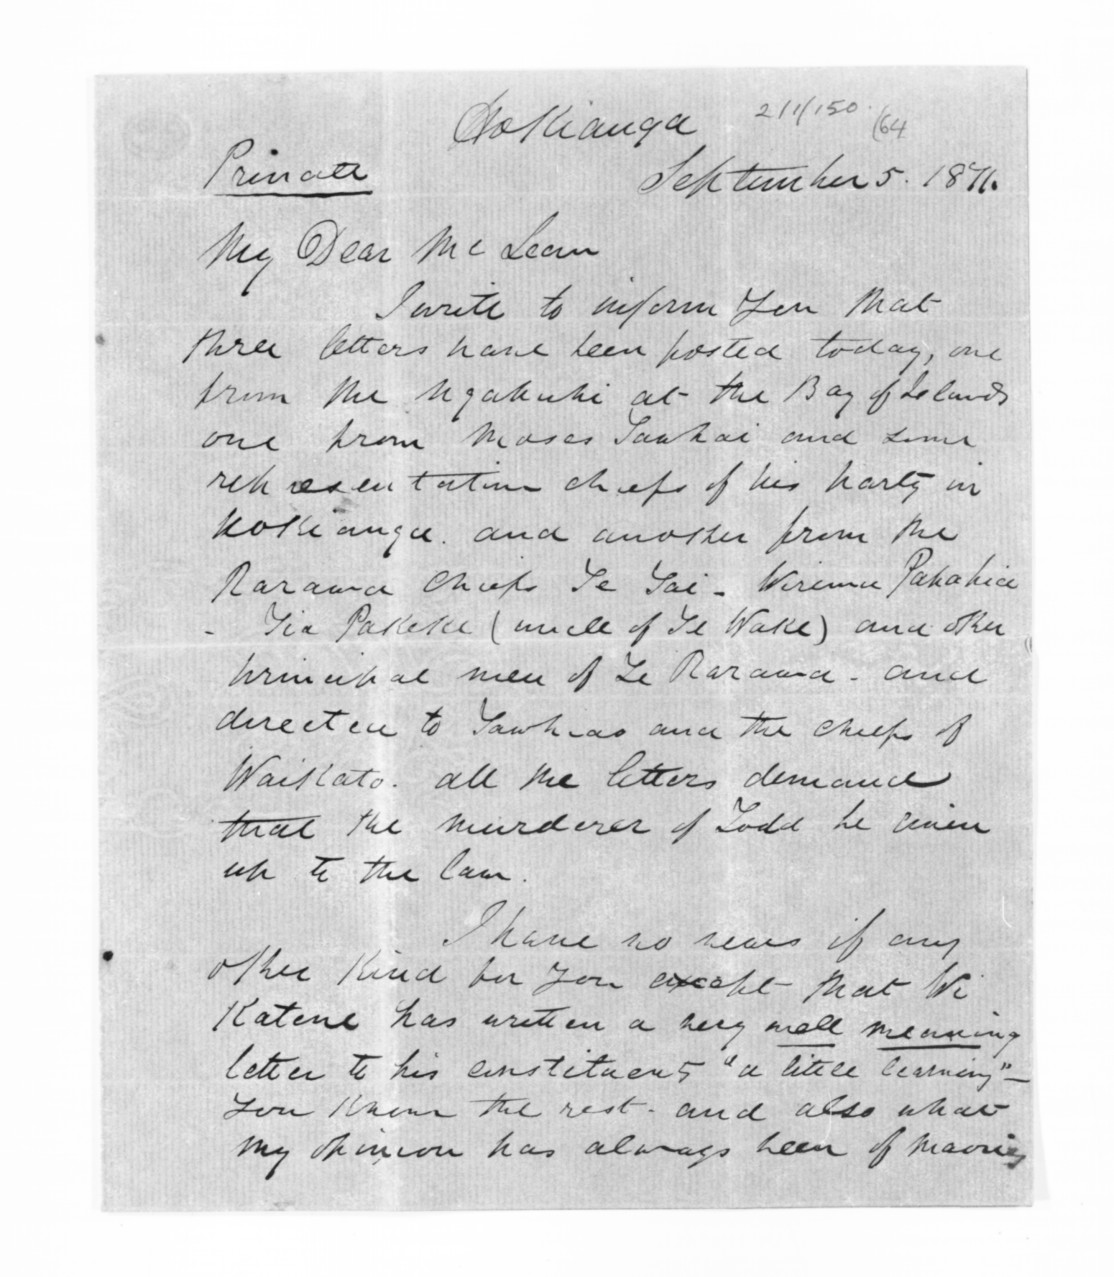 Hokianga 2/1/150. (64
Private
September 5. 1871.
My Dear McLean
I write to inform you that
three letters have been posted today, one
from the Ngapuhi at the Bay of Islands
one from Moses Tawhai and some
representative chiefs of his party in
Hokianga. and another from the
Rarawa Chiefs Te Tai - Wiremu
- Tia Pakeke (uncle of Te Wake) and other
principal men of Te Rarawa - and
directed to Tawhiao and the chiefs of
Waikato. all the letters demand
that the murderer of Todd be given
up to the law.
I have no news of any
other kind for you except that Wi
Katene has written a very well meaning
letter to his constituents "a little learning" -
you know the rest - and also what
my opinion has always been of Maories